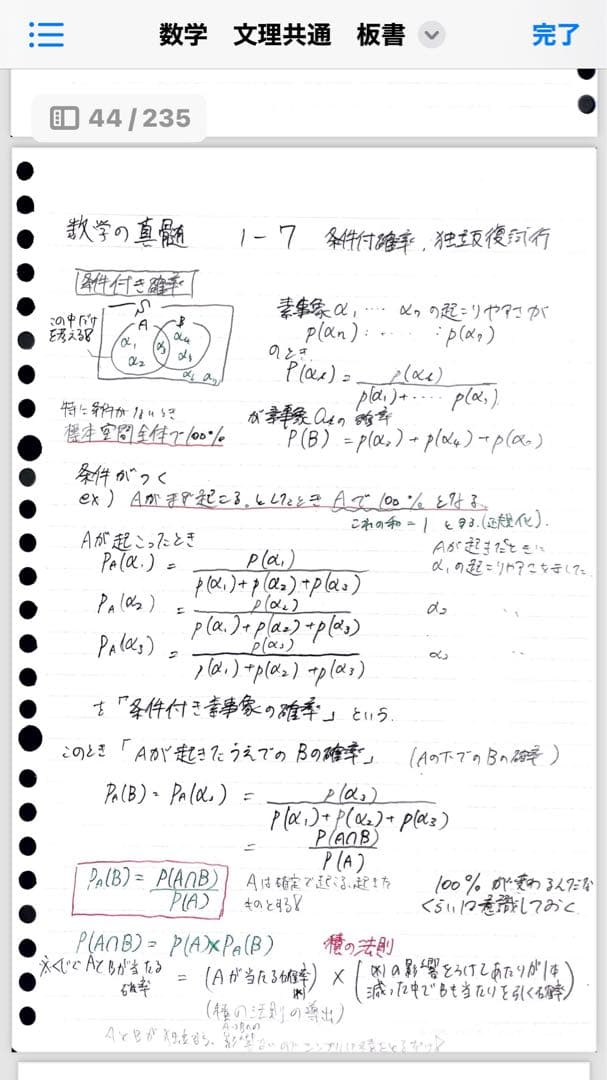 数学 文理共通 板書
完了
44/235
数学の真髄 1-7 条件付確率、独立復試行
条件付き確率
この中だけ
を考える
Ω
A B
α₁ α₂ α₃ α₄ α₅
α₆ α₇
素事象α₁ … α₇の起こりやすさが
のとき
特に条件がないとき
標本空間全体で100%
が素事象 の確率
P(B) =
条件がつく
ex) Aがまず起こる、としたとき Aで100%となる。
これの和=1 とする.(正規化).
Aが起こったとき
P_A(α₁) = p(α₁) / p(α₁)+p(α₂)+p(α₃)
Aが起きたときに
α₁の起こりやすさを示した
P_A(α₂) = p(α₂) / p(α₁)+p(α₂)+p(α₃)
α₂ 〃
P_A(α₃) = p(α₃) / p(α₁)+p(α₂)+p(α₃)
α₃ 〃
を「条件付き素事象の確率」という.
このとき「Aが起きたうえでのBの確率」 (Aの下でのBの確率)
P_A(B) = P_A(α₃) = p(α₃) / p(α₁)+p(α₂)+p(α₃)
= P(A∩B) / P(A)
P_A(B) = P(A∩B) / P(A)
Aは確定で起こる、起きた
ものとする
100%が変わるんだな
くらいは意識しておく
P(A∩B) = P(A)×P_A(B) 積の法則
※くじでAとBが当たる
確率
= (Aが当たる確率) × (の影響をうけてあたりが1本
減った中でBも当たりを引く確率)
(積の法則の導出)
AとBが独立なら、